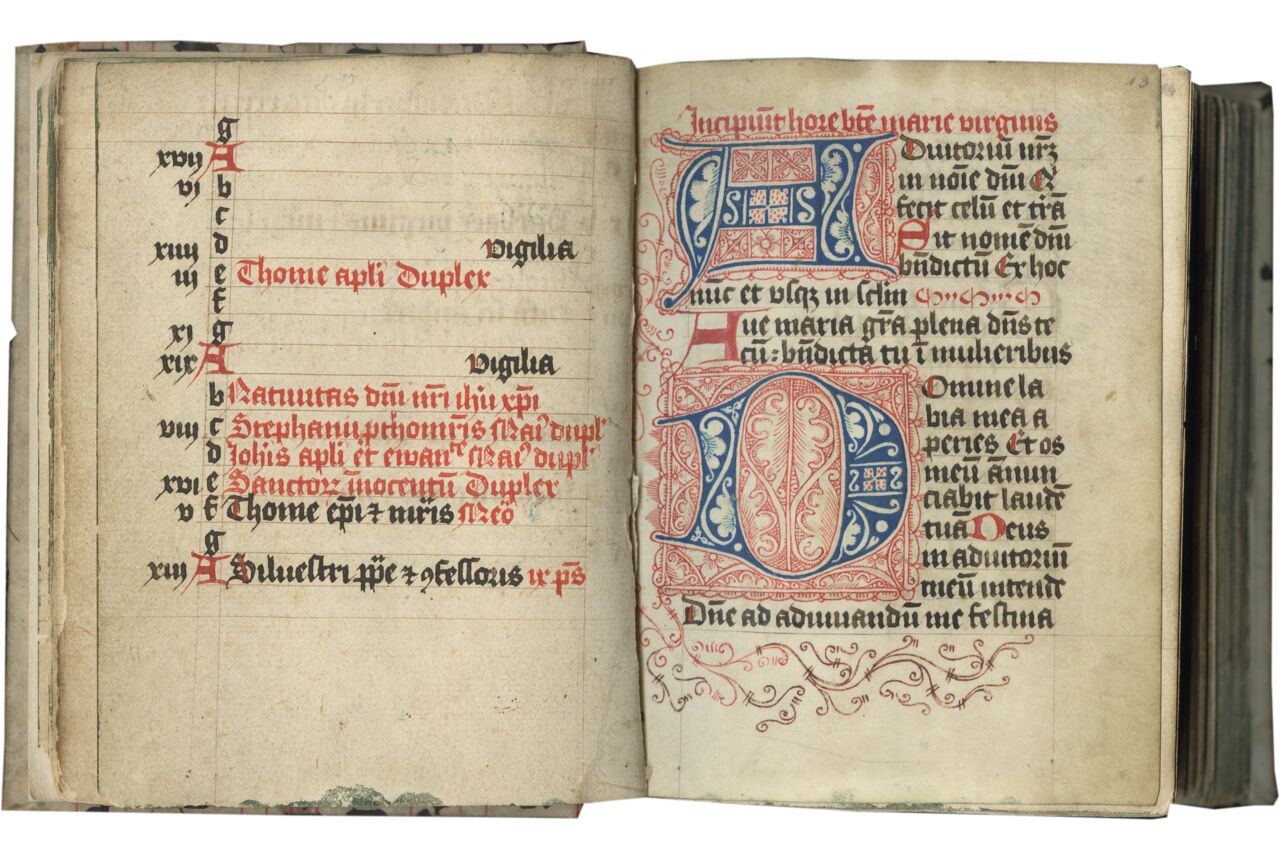 g
xvij A
vj b
c
xiiij d Vigilia
iij e Thome apli Duplex
f
xj g
xix A Vigilia
b Natiuitas dñi nr̃i ihũ xp̃i
viij c Stephani pthomr̃is Maiꝰ dupl
d Johĩs apli et ewanᵗᵉ Maiꝰ dupl
xvi e Sanctoꝝ ĩnocentũ Duplex
v f Thome ep̃i ⁊ mr̃is
g
xiij A Siluestri pp̃e ⁊ ꝯfessoris ix p̃s
13
Incipiũt hore bt̃e marie virginis
Aduitoriũ nr̃ꝫ
in noĩe dñi Q̃
fecit celũ et tr̃a
Sit nomẽ dñi
bñdictũ Ex hoc
nũc et vsqꝫ in sclm̃
Aue maria gr̃a plena dñs te
cũ: bñdicta tu ĩ mulieribus
Domine la
bia mea a
peries Et os
meũ ãnun
ciabit laudẽ
tuã Deus
in aduitoriũ
meũ intende
Dñe ad adiuuandũ me festina